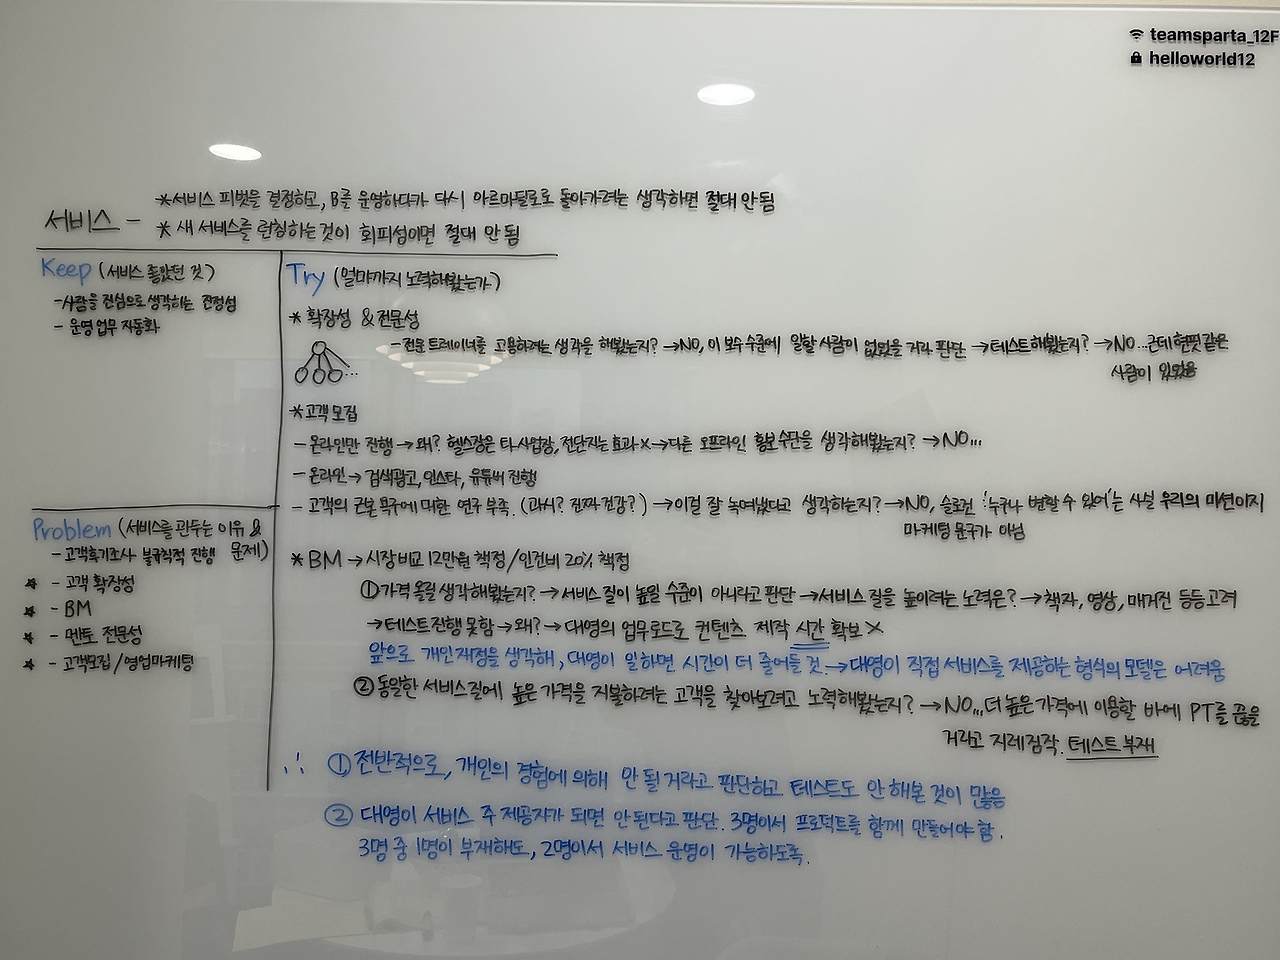 teamsparta_12F
helloworld12
서비스 -
*서비스 피벗을 결정하고, B를 운영하다가 다시 아르마딜로로 돌아가려는 생각하면 절대 안됨
* 새 서비스를 런칭하는것이 회피성이면 절대 안됨
Keep (서비스 좋았던 것)
-사람을 진심으로 생각하는 진정성
- 운영 업무 자동화
Problem (서비스를 관두는 이유 & 문제)
- 고객후기조사 불규칙적 진행
* - 고객 확장성
* - BM
* - 멘토 전문성
* - 고객모집/영업마케팅
Try (얼마까지 노력해봤는가)
* 확장성 & 전문성
- 전문 트레이너를 고용하려는 생각을 해봤는지? → NO, 이 보수 수준에 일할 사람이 없었을 거라 판단 → 테스트 해봤는지? → NO... 근데 현핏같은
사람이 있었음
...
*고객모집
- 온라인만 진행 → 왜? 헬스장은 타사업장, 전단지는 효과 X → 다른 오프라인 홍보 수단을 생각해봤는지? → NO...
- 온라인 → 검색광고, 인스타, 유튜버 진행
- 고객의 근본 욕구에 대한 연구 부족. (과시? 진짜 건강?) → 이걸 잘 녹여냈다고 생각하는지? → NO, 슬로건 '누구나 변할 수 있어'는 사실 우리의 미션이지
마케팅 문구가 아님
* BM → 시장비교 12만원 책정 / 인건비 20% 책정
①가격 올릴 생각해봤는지? → 서비스 질이 높일 수준이 아니라고 판단 → 서비스 질을 높이려는 노력은? → 책자, 영상, 매거진 등등 고려
→ 테스트 진행 못함 → 왜? → 대영의 업무로드로 컨텐츠 제작 시간 확보 X
앞으로 개인재정을 생각해, 대영이 일하면 시간이 더 줄어들 것. → 대영이 직접 서비스를 제공하는 형식의 모델은 어려움
② 동일한 서비스질에 높은 가격을 지불하려는 고객을 찾아보려고 노력해봤는지? → NO... 더 높은 가격에 이용할 바에 PT를 끊을
거라고 지레짐작. 테스트 부재
∴ ① 전반적으로, 개인의 경험에 의해 안 될 거라고 판단하고 테스트도 안 해본 것이 많음
② 대영이 서비스 주 제공자가 되면 안된다고 판단. 3명이서 프로덕트를 함께 만들어야 함.
3명 중 1명이 부재해도, 2명이서 서비스 운영이 가능하도록.